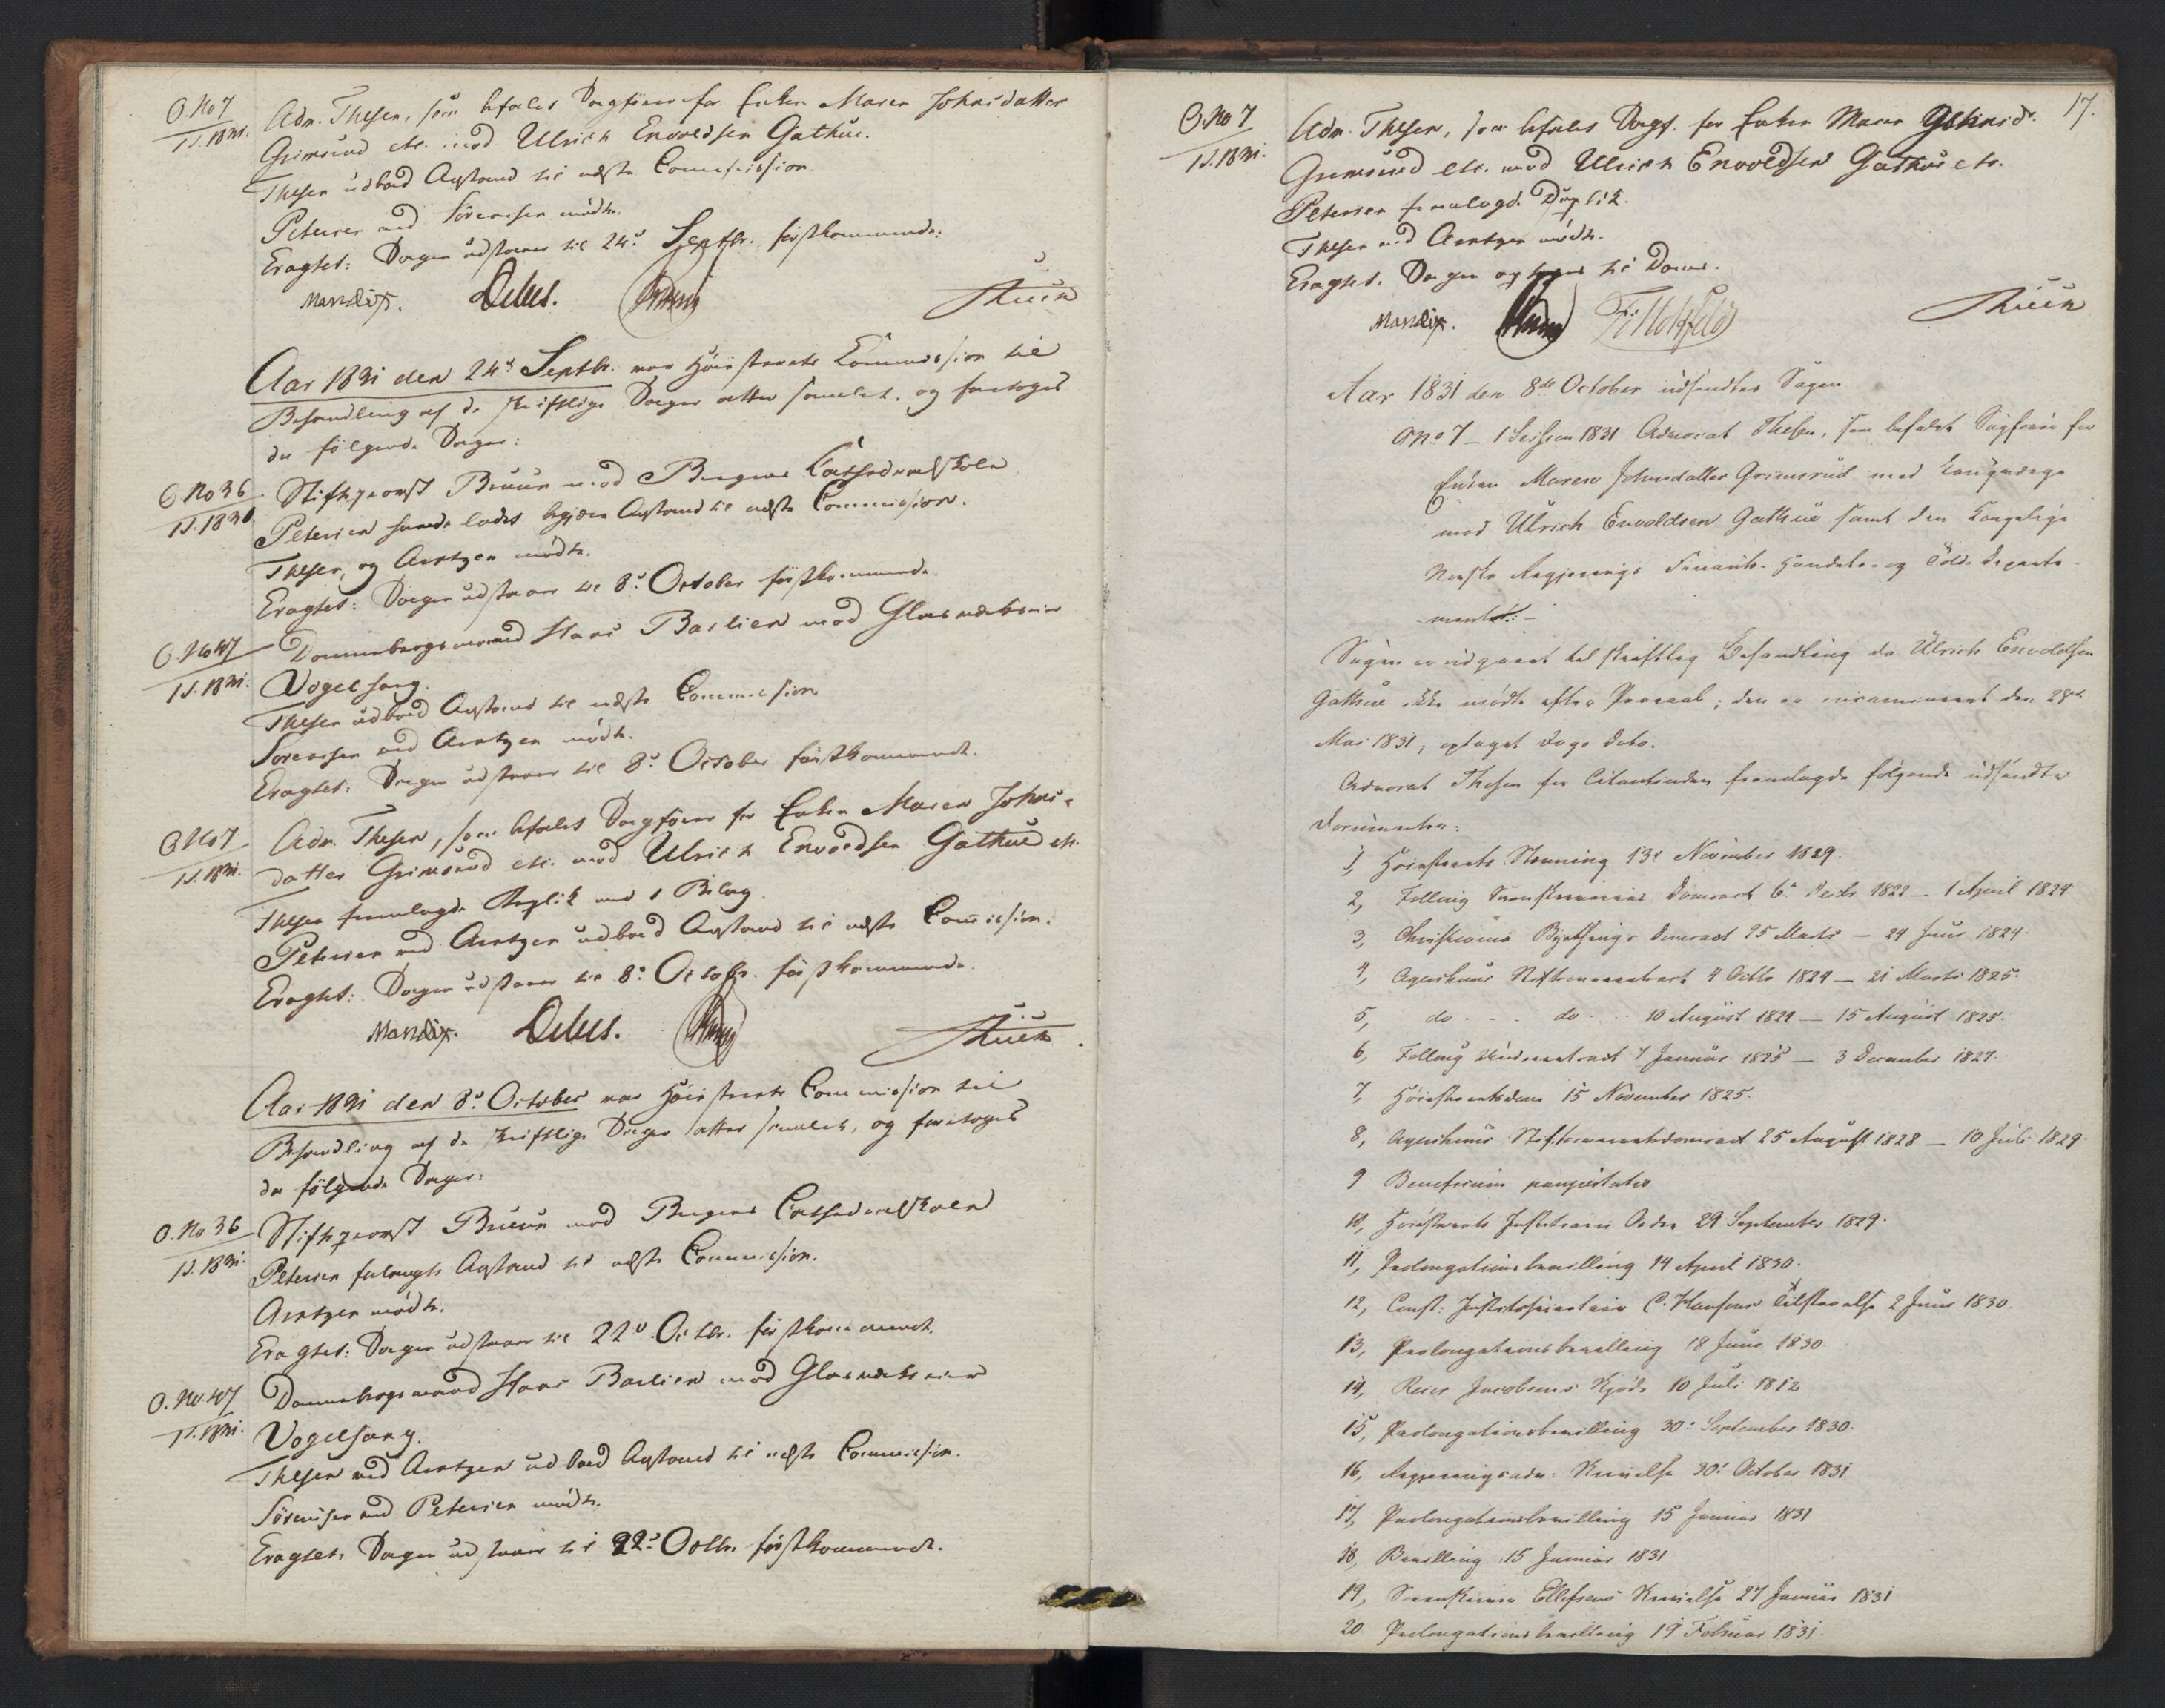 O. No 7
1 S. 1831.
Adv. Thesen, som befalet Sagfører for Enken Maren Johnsdatter
Grimsrud etc. mod Ulrich Envoldsen Gathue.
Thesen udbad Anstand til næste Commission
Petersen med Sörensen mödte.
Eragtet: Sagen udstaaer til 24de Septbr. förstkommende.
Mandix. Debes.
Aar 1831 den 24de Septbr. var Höiesterets Commission til
Behandling af de skriftlige Sager atter samlet, og foretoges
da fölgende Sager:
O. No 36
1 S. 1831.
Stiftsprovst Bruun mod Bergens Cathedralskole
Petersen lod begjere Anstand til næste Commission.
Thesen og Arntzen mödte.
Eragtet: Sagen udstaaer til 8de October förstkommende
O. No 47
1 S. 1831.
Dannebrogsmand Hans Barlien mod Glasværkseier
Vogelsang.
Thesen udbad Anstand til næste Commission
Sörensen med Arntzen mödte.
Eragtet: Sagen udstaaer til 8de October förstkommende.
O. No 7
1 S. 1831.
Adv. Thesen, som befalet Sagförer for Enken Maren Johns-
datter Grimsrud etc. mod Ulrich Envoldsen Gathue etc.
Thesen fremlagde Replik med 1 Bilag.
Petersen med Arntzen udbad Anstand til næste Commission.
Eragtet: Sagen udstaaer til 8de Octobr. förstkommende.
Mandix. Debes.
Aar 1831 den 8de October var Höiesterets Commission til
Behandling af de skriftlige Sager atter samlet, og foretoges
da fölgende Sager:
O. No 36
1 S. 1831.
Stiftsprovst Bruun mod Bergens Cathedralskole
Petersen forlangte Anstand til næste Commission.
Arntzen mödte.
Eragtet: Sagen udstaaer til 22de Octbr. förstkommende.
O. No. 47
1 S. 1831.
Dannebrogsmand Hans Barlien mod Glasværkseier
Vogelsang.
Thesen med Arntzen udbad Anstand til næste Commission.
Sörensen med Petersen mödte.
Eragtet: Sagen udstaaer til 22de Octbr. förstkommende.
17.
O. No 7
1 S. 1831.
Adv. Thesen, som befalet Sagf. for Enken Maren Johnsd.
Grimsrud etc. mod Ulrich Envoldsen Gathue etc.
Petersen fremlagde Duplik.
Thesen med Arntzen mödte.
Eragtet. Sagen optages til Doms.
Mandix.
Aar 1831 den 8de October udsendtes Sagen
O No 7 – 1 Session 1831 Advocat Thesen, som befalet Sagförer for
Enken Maren Johnsdatter Grimsrud med Laugværge
mod Ulrich Envoldsen Gathue samt den Kongelige
Norske Regjerings Finants- Handels- og Told-Departe-
mentet. –
Sagen er udgaaet til skriftlig Behandling da Ulrich Envoldsen
Gathue ikke mödte efter Paaraab; den er incamineret den 28de
Mai 1831, optaget Dags Dato.
Advocat Thesen for Citantinden fremlagde fölgende udsendte
Documenter:
1, Höiesterets Stævning 13de November 1829.
2, Follaug Sorenskriveries Domsact 6te Decbr 1822 – 1 April 1824
3, Christiania Byethings Domsact 25 Marts – 24 Juni 1824.
4, Agershuus Stiftsoverretsact 4 Octbr 1824 – 21 Marts 1825.
5, do - - do - - 10 August 1829 – 15 August 1825.
6, Follaug Underretsact 7 Januar 1825 – 3 December 1827.
7, Höiesteretsdom 15 November 1825.
8, Agershuus Stiftsoverretsdomsact 25 August 1828 – 10 Juli 1829.
9 Beneficium paupertatis
10, Höiesterets Justitiarii Ordre 29 September 1829.
11, Prolongationsbevilling 14 April 1830.
12, Const: Justitssecretair C. Hansens Tilstaaelse 2 Juni 1830.
13, Prolongationsbevilling 18 Juni 1830.
14, Reier Jacobsens Skjöde 10 Juli 1812
15, Prolongationsbevilling 30te September 1830.
16, Regjeringsadv: Skrivelse 30te October 1831
17, Prolongationsbevilling 15 Januar 1831
18, Bevilling 15 Januar 1831
19, Sorenskriver Ellefsens Skrivelse 27 Januar 1831
20 Prolongationsbevilling 19 Februar 1831.